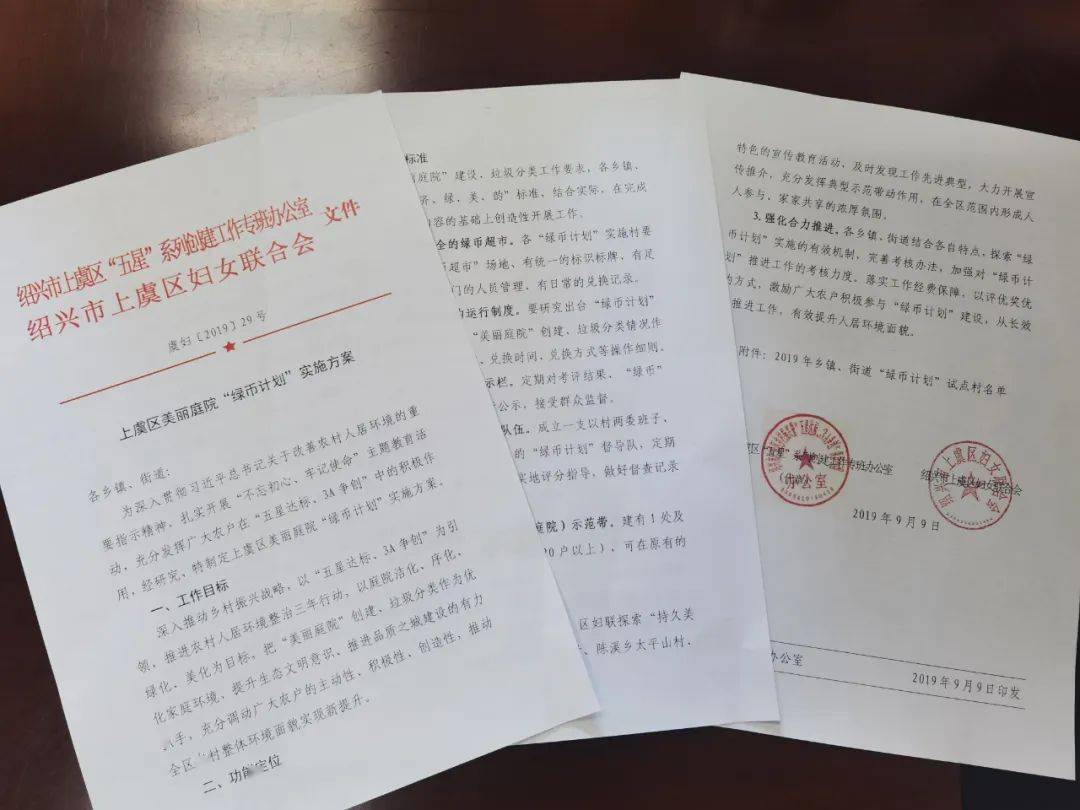 绍兴市上虞区“五星”系列创建工作专班办公室
绍兴市上虞区妇女联合会
文件
虞妇〔2019〕29号
上虞区美丽庭院“绿币计划”实施方案
各乡镇、街道：
为深入贯彻习近平总书记关于改善农村人居环境的重
要指示精神，扎实开展“不忘初心、牢记使命”主题教育活
动，充分发挥广大农户在“五星达标、3A争创”中的积极作
用，经研究，特制定上虞区美丽庭院“绿币计划”实施方案。
一、工作目标
深入推动乡村振兴战略，以“五星达标、3A争创”为引
领，推进农村人居环境整治三年行动，以庭院洁化、序化、
绿化、美化为目标，把“美丽庭院”创建、垃圾分类作为优
化家庭环境、提升生态文明意识、推进品质之城建设的有力
抓手，充分调动广大农户的主动性、积极性、创造性，推动
全区 村整体环境面貌实现新提升。
二、功能定位
标准
庭院”建设、垃圾分类工作要求，各乡镇、
齐、绿、美、韵”标准，结合实际，在完成
内容的基础上创造性开展工作。
全的绿币超市。各“绿币计划”实施村要
超市”场地、有统一的标识标牌、有足
门的人员管理、有日常的兑换记录。
的运行制度。要研究出台“绿币计划”
“美丽庭院”创建、垃圾分类情况作
、兑换时间、兑换方式等操作细则。
示栏。定期对考评结果、“绿币”
公示，接受群众监督。
队伍。成立一支以村两委班子、
的“绿币计划”督导队，定期
实地评分指导，做好督查记录
庭院）示范带。建有1处及
20户以上），可在原有的
区妇联探索“持久美
、陈溪乡太平山村、
特色的宣传教育活动、及时发现工作先进典型，大力开展宣
传推介，充分发挥典型示范带动作用，在全区范围内形成人
人参与、家家共享的浓厚氛围。
3.强化合力推进。各乡镇、街道结合各自特点，探索“绿
币计划”实施的有效机制，完善考核办法，加强对“绿币计
划”推进工作的考核力度。落实工作经费保障，以评优奖优
的方式，激励广大农户积极参与“绿币计划”建设，从长效
推进工作，有效提升人居环境面貌。
附件：2019年乡镇、街道“绿币计划”试点村名单
区“五星”系列创建工作专班办公室
绍兴市上虞区妇女联合会
办公室
2019年9月9日
办公室
2019年9月9日印发